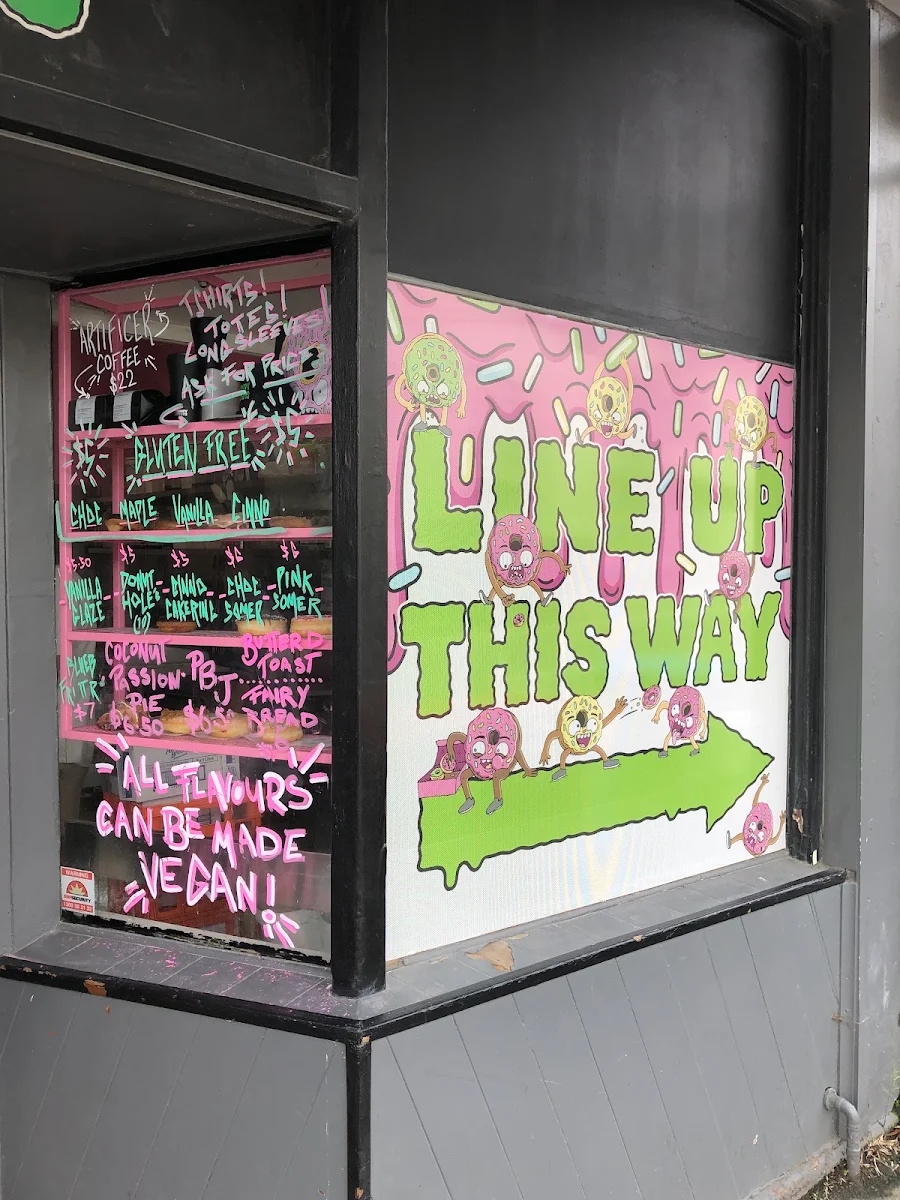 ARTIFICER
COFFEE
$22
TSHIRTS!
TOTES!
LONG SLEEVES!
ASK FOR PRICE
$5 GLUTEN FREE $5
CHOC MAPLE VANILLA CINNO
$5 $5 $6 $6
VANILLA GLAZE
DONUT HOLES
CINNO
CHOC SOMER
PINK SOMER
$7
COCONUT PASSION PIE
$6.50
PBJ
BUTTER'D TOAST
FAIRY BREAD
ALL FLAVOURS
CAN BE MADE
VEGAN!
WARNING
SECURITY
LINE UP
THIS WAY